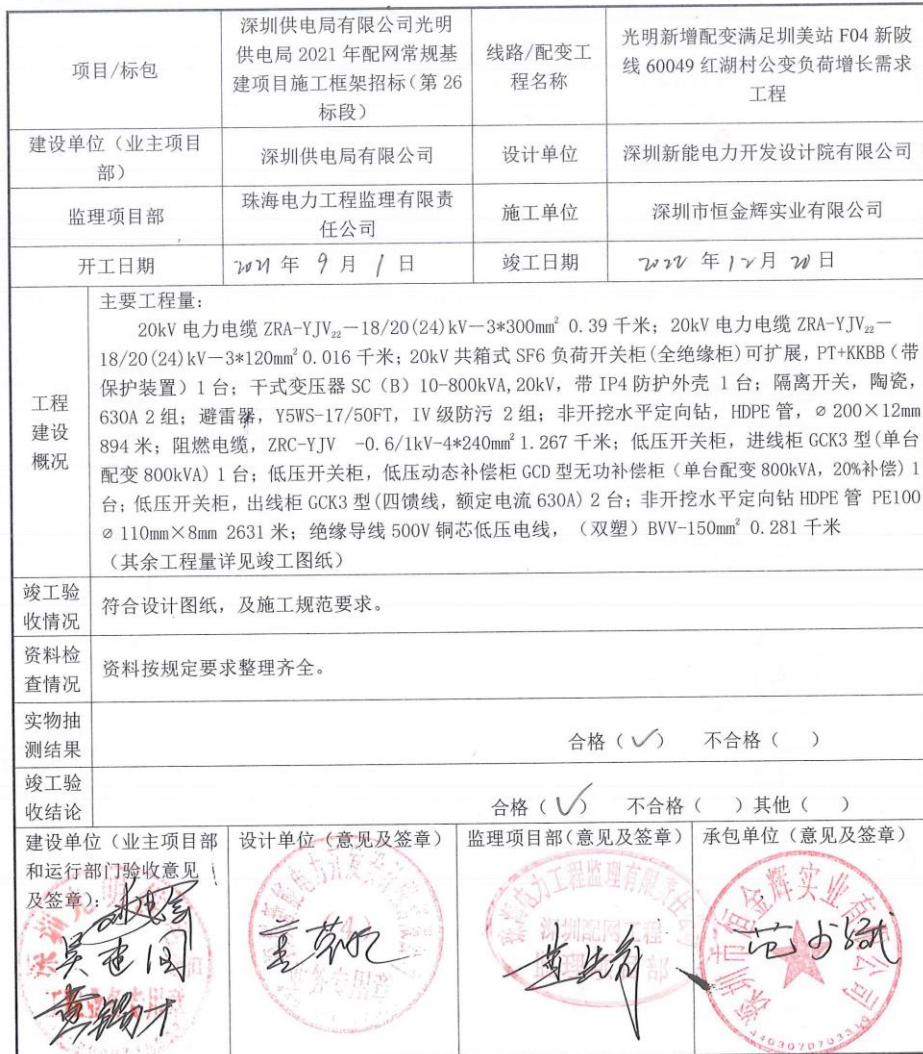 项目/标包
深圳供电局有限公司光明
供电局 2021 年配网常规基
建项目施工框架招标(第 26
标段)
线路/配变工
程名称
光明新增配变满足圳美站 F04 新陂
线 60049 红湖村公变负荷增长需求
工程
建设单位(业主项目
部)
深圳供电局有限公司
设计单位
深圳新能电力开发设计院有限公司
监理项目部
珠海电力工程监理有限责
任公司
施工单位
深圳市恒金辉实业有限公司
开工日期
2021 年 9 月 1 日
竣工日期
2022 年 12 月 20 日
工程
建设
概况
主要工程量:
20kV 电力电缆 ZRA-YJV₂₂－18/20(24)kV－3*300mm² 0.39 千米; 20kV 电力电缆 ZRA-YJV₂₂－
18/20(24)kV－3*120mm² 0.016 千米; 20kV 共箱式 SF6 负荷开关柜(全绝缘柜)可扩展, PT+KKBB(带
保护装置) 1 台; 干式变压器 SC (B) 10-800kVA,20kV, 带 IP4 防护外壳 1 台; 隔离开关, 陶瓷,
630A 2 组; 避雷器, Y5WS-17/50FT, IV 级防污 2 组; 非开挖水平定向钻, HDPE 管, ∅ 200×12mm
894 米; 阻燃电缆, ZRC-YJV -0.6/1kV-4*240mm² 1.267 千米; 低压开关柜, 进线柜 GCK3 型(单台
配变 800kVA) 1 台; 低压开关柜, 低压动态补偿柜 GCD 型无功补偿柜 (单台配变 800kVA, 20%补偿) 1
台; 低压开关柜, 出线柜 GCK3 型(四馈线, 额定电流 630A) 2 台; 非开挖水平定向钻 HDPE 管 PE100
∅ 110mm×8mm 2631 米; 绝缘导线 500V 铜芯低压电线, (双塑) BVV-150mm² 0.281 千米
(其余工程量详见竣工图纸)
竣工验
收情况
符合设计图纸, 及施工规范要求。
资料检
查情况
资料按规定要求整理齐全。
实物抽
测结果
合格 (✓) 不合格 ( )
竣工验
收结论
合格 (✓) 不合格 ( ) 其他 ( )
建设单位 (业主项目部
和运行部门验收意见
及签章):
吴建国
设计单位 (意见及签章)
监理项目部(意见及签章)
珠海电力工程监理有限责任公司
深圳配网工程
监理项目部
承包单位 (意见及签章)
深圳市恒金辉实业有限公司